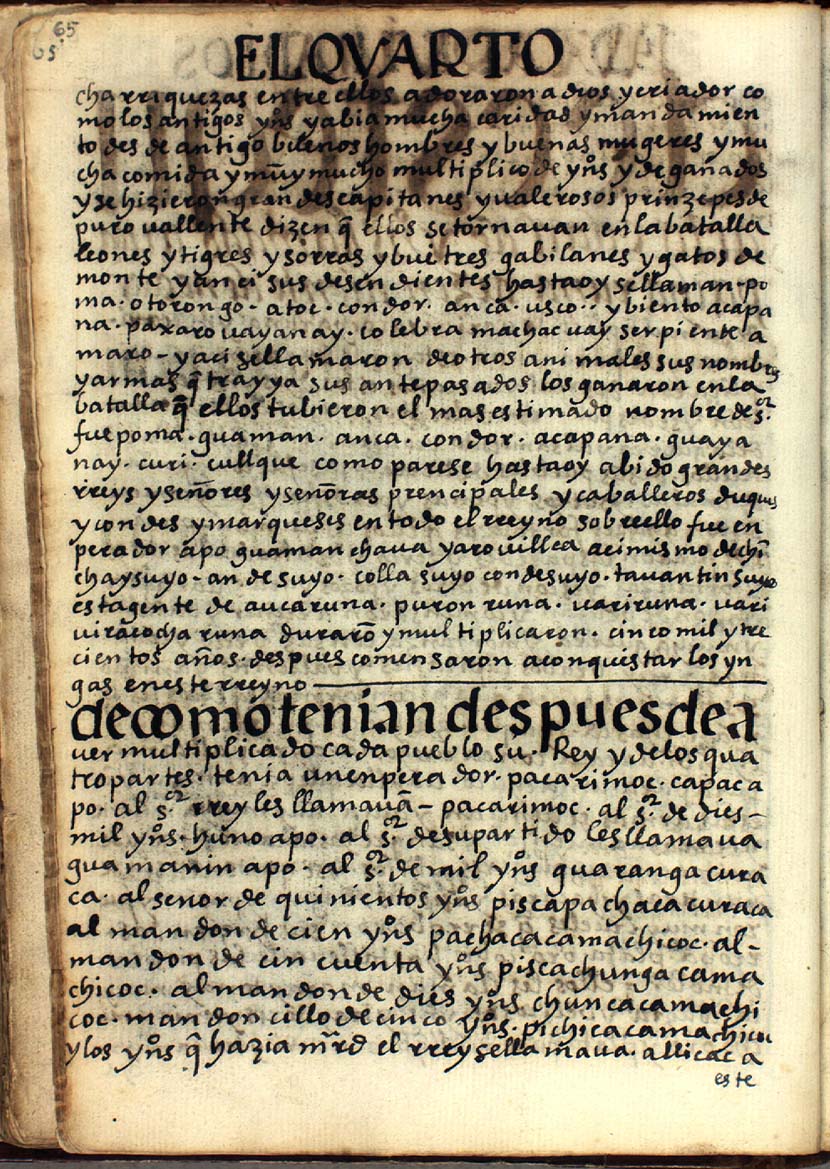 65
65
EL QVARTO
cha rriquezas entre ellos adoraron a dios y criador co
mo los antigos yns y abia mucha caridad y mandamien
to desde antigo buenos hombres y buenas mugeres y mu
cha comida y muy mucho multiplico de yns y de ganados
y se hizieron grandes capitanes y ualerosos prinzepes de
puro uallente dizen q̃ ellos se tornauan en la batalla
leones y tigres y sorras y buetres gabilanes y gatos de
monte y anci sus desendientes hasta oy se llaman - po
ma · otorongo · atoc · condor · anca · usco · y biento acapa
na · paxaro uayanay · colebra machacuay serpiente a
maro - y aci se llamaron de otros animales sus nombres
y armas q̃ trayya sus antepasados los ganaron en la
batalla q̃ ellos tubieron el mas estimado nombre de sor
fue poma · guaman · anca · condor · acapana · guaya
nay · curi · cullque como parese hasta oy abido grandes
rreys y señores y señoras prencipales y caballeros duques
y condes y marqueses en todo el rreyno sobre ello fue en
perador apo guaman chaua yarouillca acimismo de chĩ
chaysuyo - ande suyo · colla suyo conde suyo · tauantin suyo
esta gente de aucaruna · puron runa · uariruna · uari
uiracocha runa durarõ y multiplicaron · cinco mil y tre
cientos años · despues comensaron a conquistar los yn
gas en este rreyno
de como tenian despues de a
uer multiplicado cada pueblo su · Rey y de los qua
tro partes · tenia un enperador · pacarimoc · capac a
po · al sor rrey les llamauã - pacarimoc · al sor de dies -
mil yns · huno apo · al sor de su partido les llamaua
guamanin apo · al sor de mil yns guaranga cura
ca · al senor de quinientos yns pisca pachaca curaca
al mandon de cien yns pachaca camachicoc · al -
mandon de cincuenta yns pisca chunga cama
chicoc · al mandon de dies yns chunca camachi
coc · mandoncillo de cinco yns · pichica camachicoc
y los yns q̃ hazia mr̃d el rrey se llamaua · allicac a
este